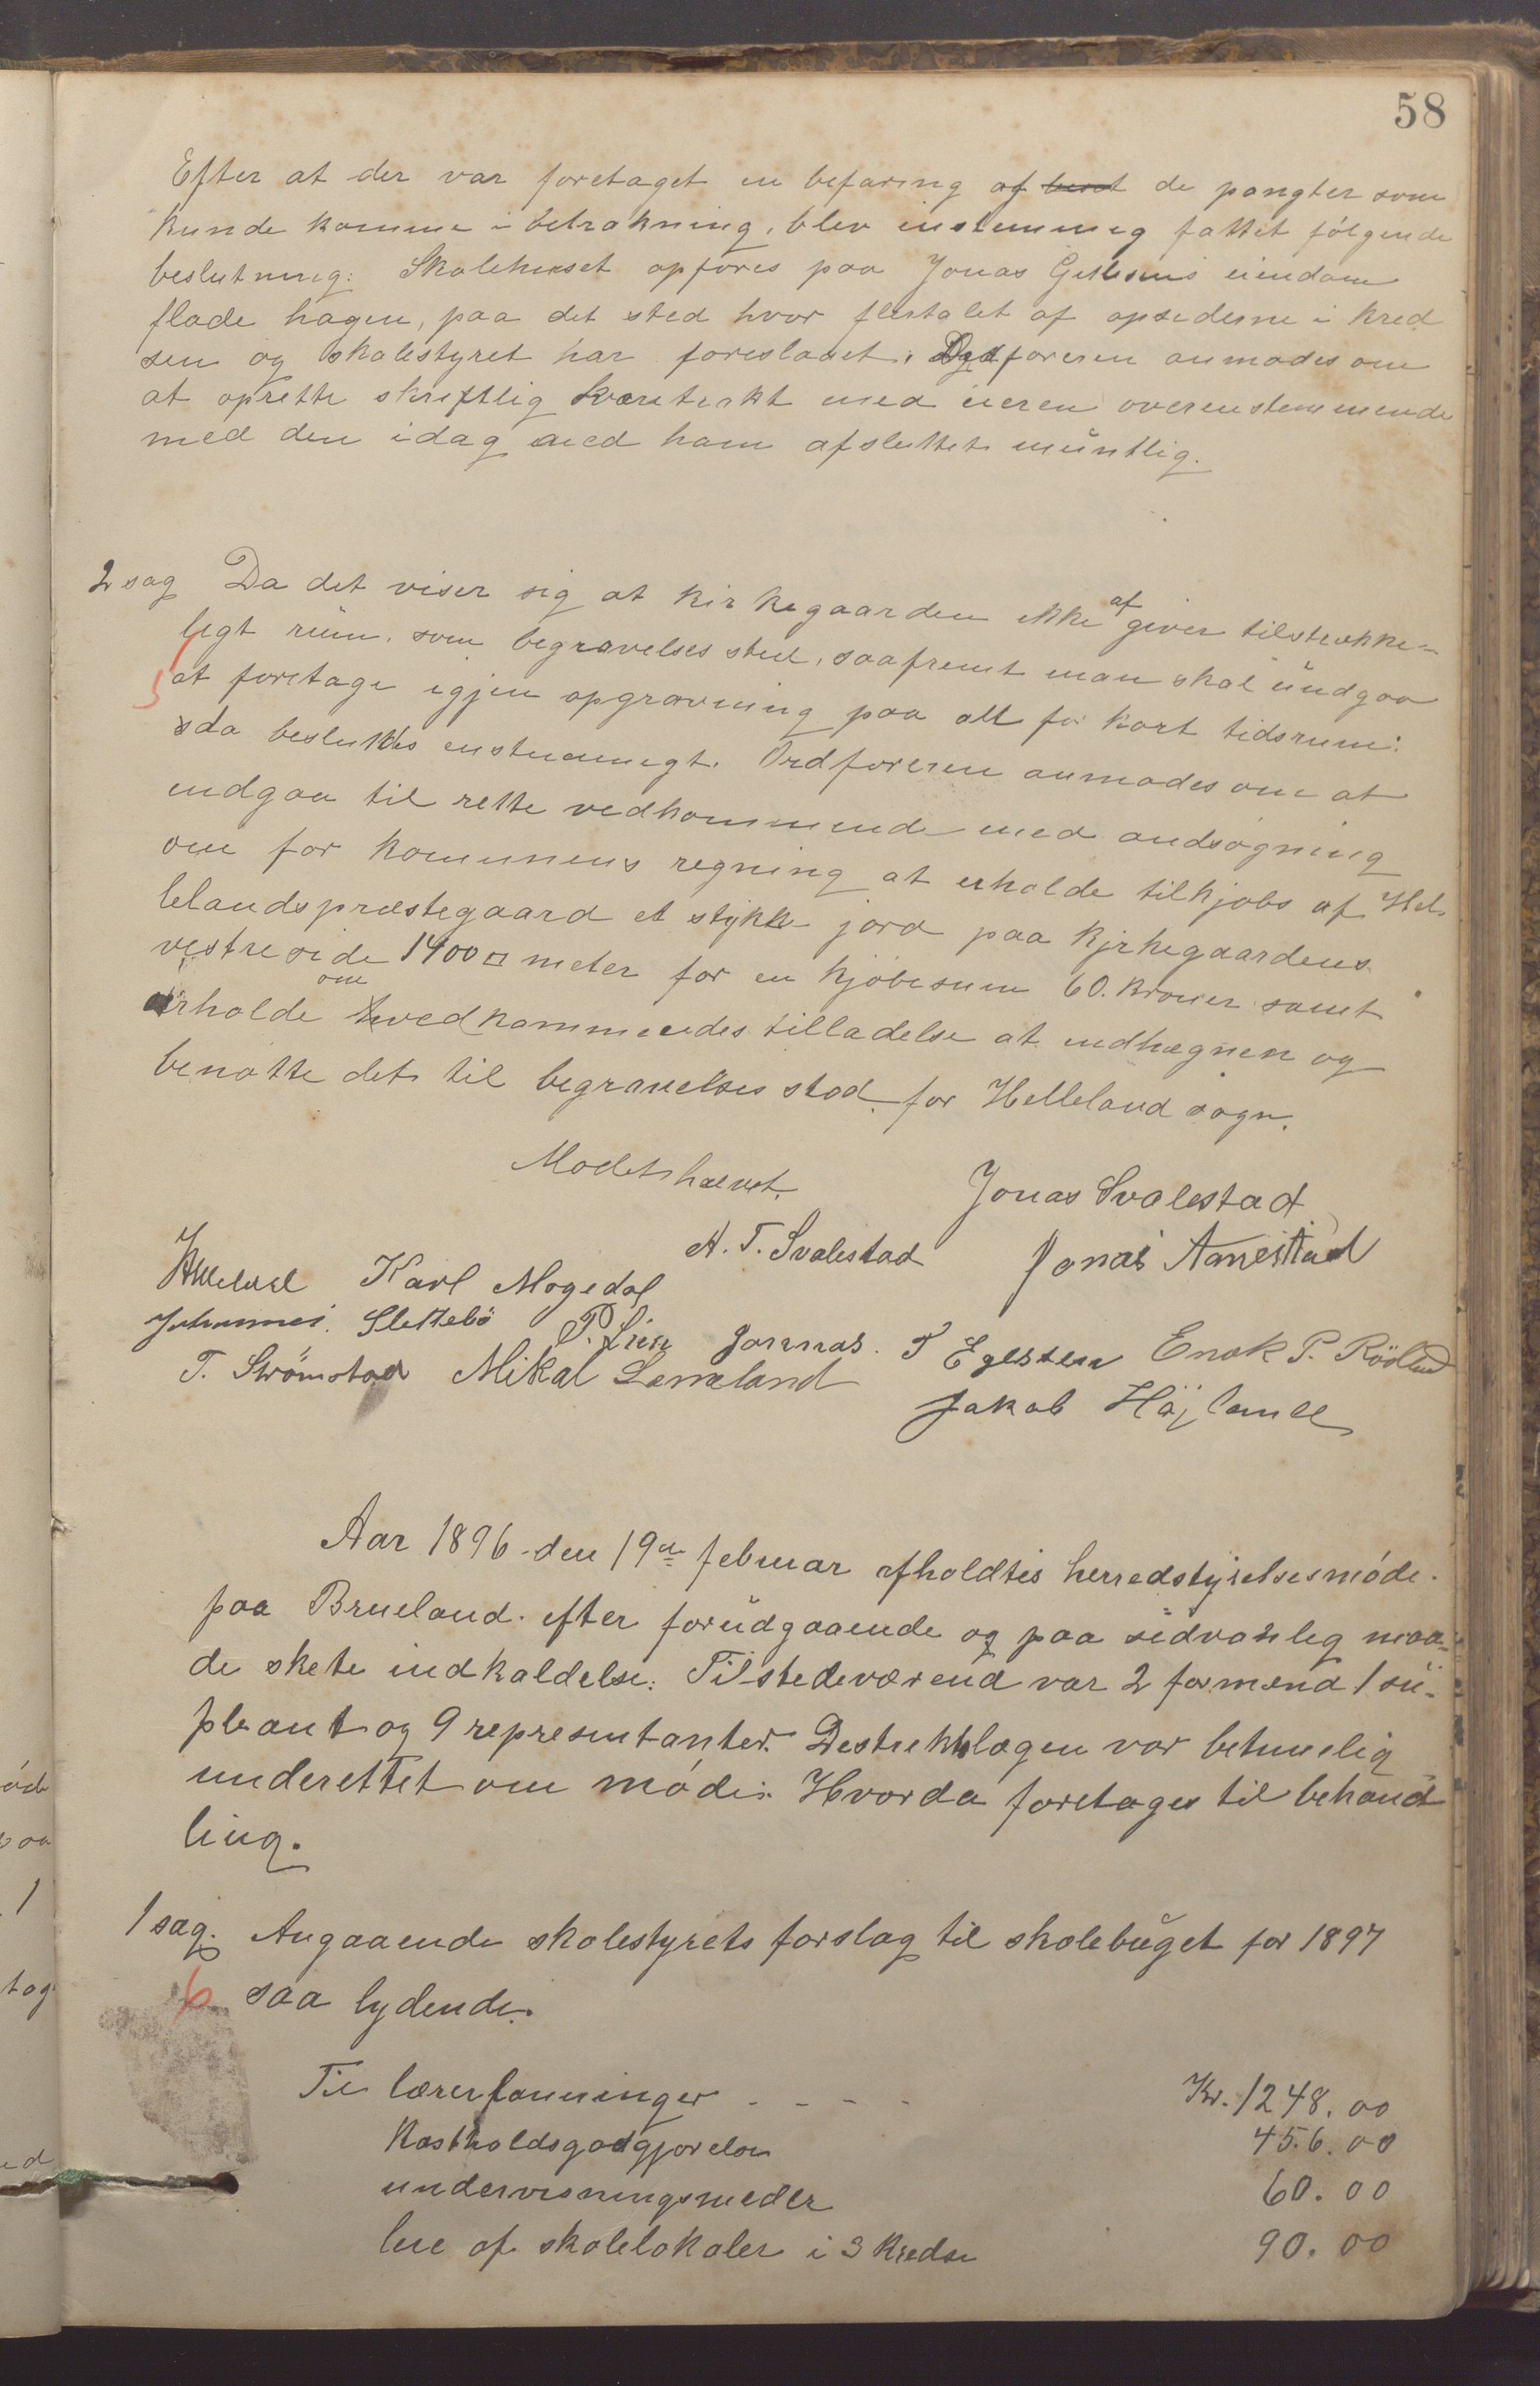 58
Efter at der var foretaget en befaring af de pongter som
kunde komme i betrakning, blev enstemmig fattet følgende
beslutning: Skolehuset opføres paa Jonas eiendom
flade hagen, paa det sted hvor flertalet af opsederne i kred
sen og skolestyret har foreslaaet, Ordføreren anmodes om
at oprette skriftlig med eieren overenstemmende
med den idag med ham afsluttet müntlig.
2 sag Da det viser sig at kirkegaarden ikke afgiver tilstrække-
ligt rüm, som begravelses sted, saafremt man skal ündgaa
5 at foretage igjen opgravning paa alt for kort tidsrum:
da besluttes enstemmigt. Ordføreren anmodes om at
indgaa til rette vedkommende med andsøgning
om for komunens regning at erholde tilkjøbs af Hel-
lelandspræstegaard et stykke jord paa kjrkegaardens
vestre side 1400 □ meter for en kjøbesum 60. kroner samt
erholde om vedkommendes tilladelse at indhegnen og
benøtte det til begravelses stad for Helleland sogn.
Mødet hævet.
Jonas Svalestad
A. T. Svalestad Jonas Aarrestad
Karl Mogedal
Johannes Slettebö P. Lien Jonnas. T Egelsteen Enok P. Röölend
T. Strømstad Mikal Lomeland
Jakob Höjland
Aar 1896 den 19de februar afholdtes herredstyrelsesmøde
paa Brueland efter forüdgaaende og paa sedvanleg maa-
de skete indkaldelse. Tilstedeværend var 2 formænd 1 sü-
pleant og 9 representanter. Destriktslægen var betimelig
underettet om møde. Hvorda foretages til behand
ling.
1 sag. Angaaende skolestyrets forslag til skolebüget for 1897
6 saa lydende.
Til lærerlønninger - - - - Kr. 1248.00
Kostholdsgodgjørelse 456.00
undervisningsmedler 60.00
leie af skolelokaler i 3 kredse 90.00